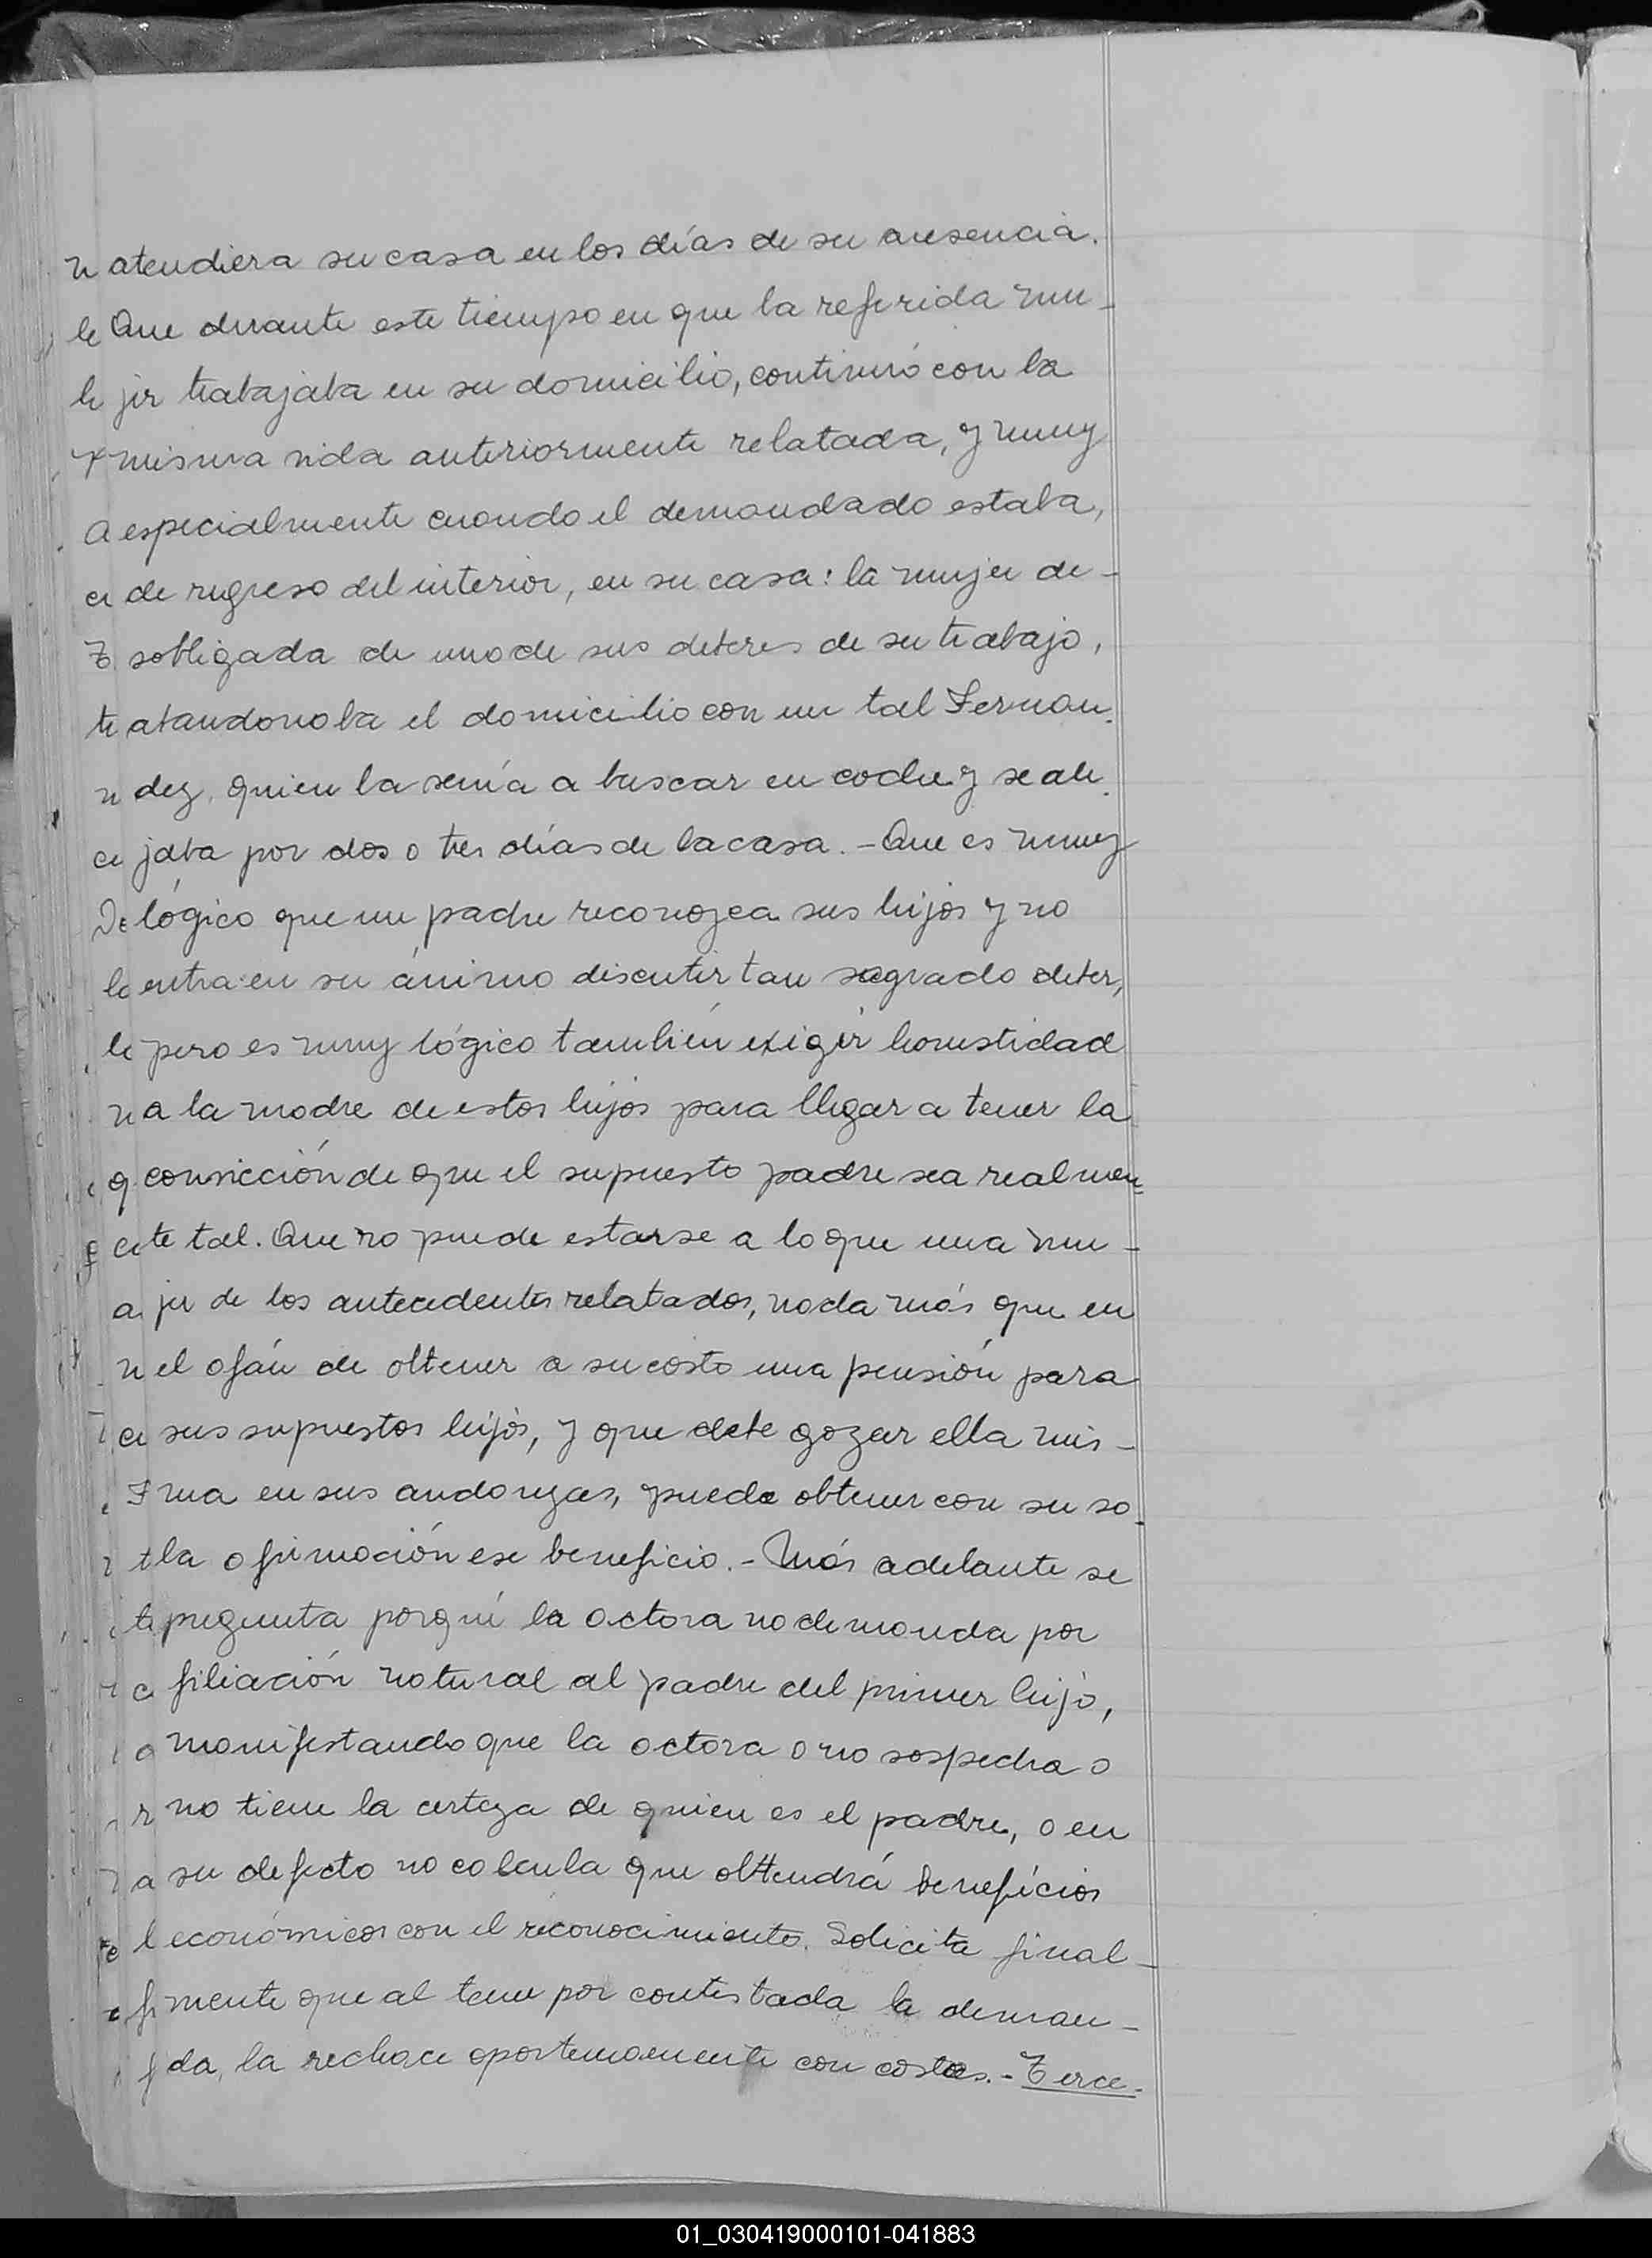 atendiera su casa en los días de su ausencia.
Que durante este tiempo en que la referida mu-
jer trabajaba en su domicilio, continuó con la
misma vida anteriormente relatada, y muy
especialmente cuando el demandado estaba,
de regreso del interior, en su casa: la mujer de-
sobligada de uno de sus deberes de su trabajo,
abandonaba el domicilio con un tal Fernan-
dez, quien la venía a buscar en coche y se ale-
jaba por dos o tres días de la casa. - Que es muy
lógico que un padre reconozca sus hijos y no
entra en su ánimo discutir tan sagrado deber,
pero es muy lógico también exigir honestidad
a la madre de estos hijos para llegar a tener la
convicción de que el supuesto padre sea realmen-
te tal. Que no puede estarse a lo que una mu-
jer de los antecedentes relatados, nada más que en
el afán de obtener a su costo una pensión para
sus supuestos hijos, y que debe gozar ella mis-
ma en sus andanzas, pueda obtener con su so-
la afirmación ese beneficio. - Más adelante se
pregunta porqué la actora no demanda por
filiación natural al padre del primer hijo,
manifestando que la actora o no sospecha o
no tiene la certeza de quien es el padre, o en
su defecto no calcula que obtendrá beneficios
económicos con el reconocimiento. Solicita final-
mente que al tener por contestada la deman-
da, la rechace oportunamente con costas. - Terce-
01_030419000101-041883